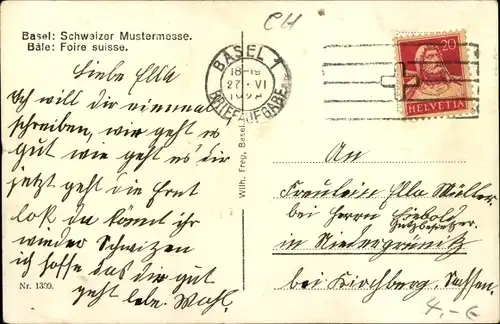 CH
Basel: Schweizer Mustermesse.
Bâle: Foire suisse.
BASEL 1
18-19
27. VI
BRIEFAUFGABE
20
HELVETIA
Liebe Ella
Ich will dir einmal
schreiben, wir geht es
gut wie geht es dir
jetzt geht die Ernt
lok du kömt ihr
wieder Schwizen
ich hoffe das dir gut
geht lebe Wohl.
Nr. 1399.
Wilh. Frey, Basel
An
Fräulein Ella Müller
bei Herrn
Gutsbesitzer.
in Niedergrünitz
bei Kirchberg, Sachsen
4,-€